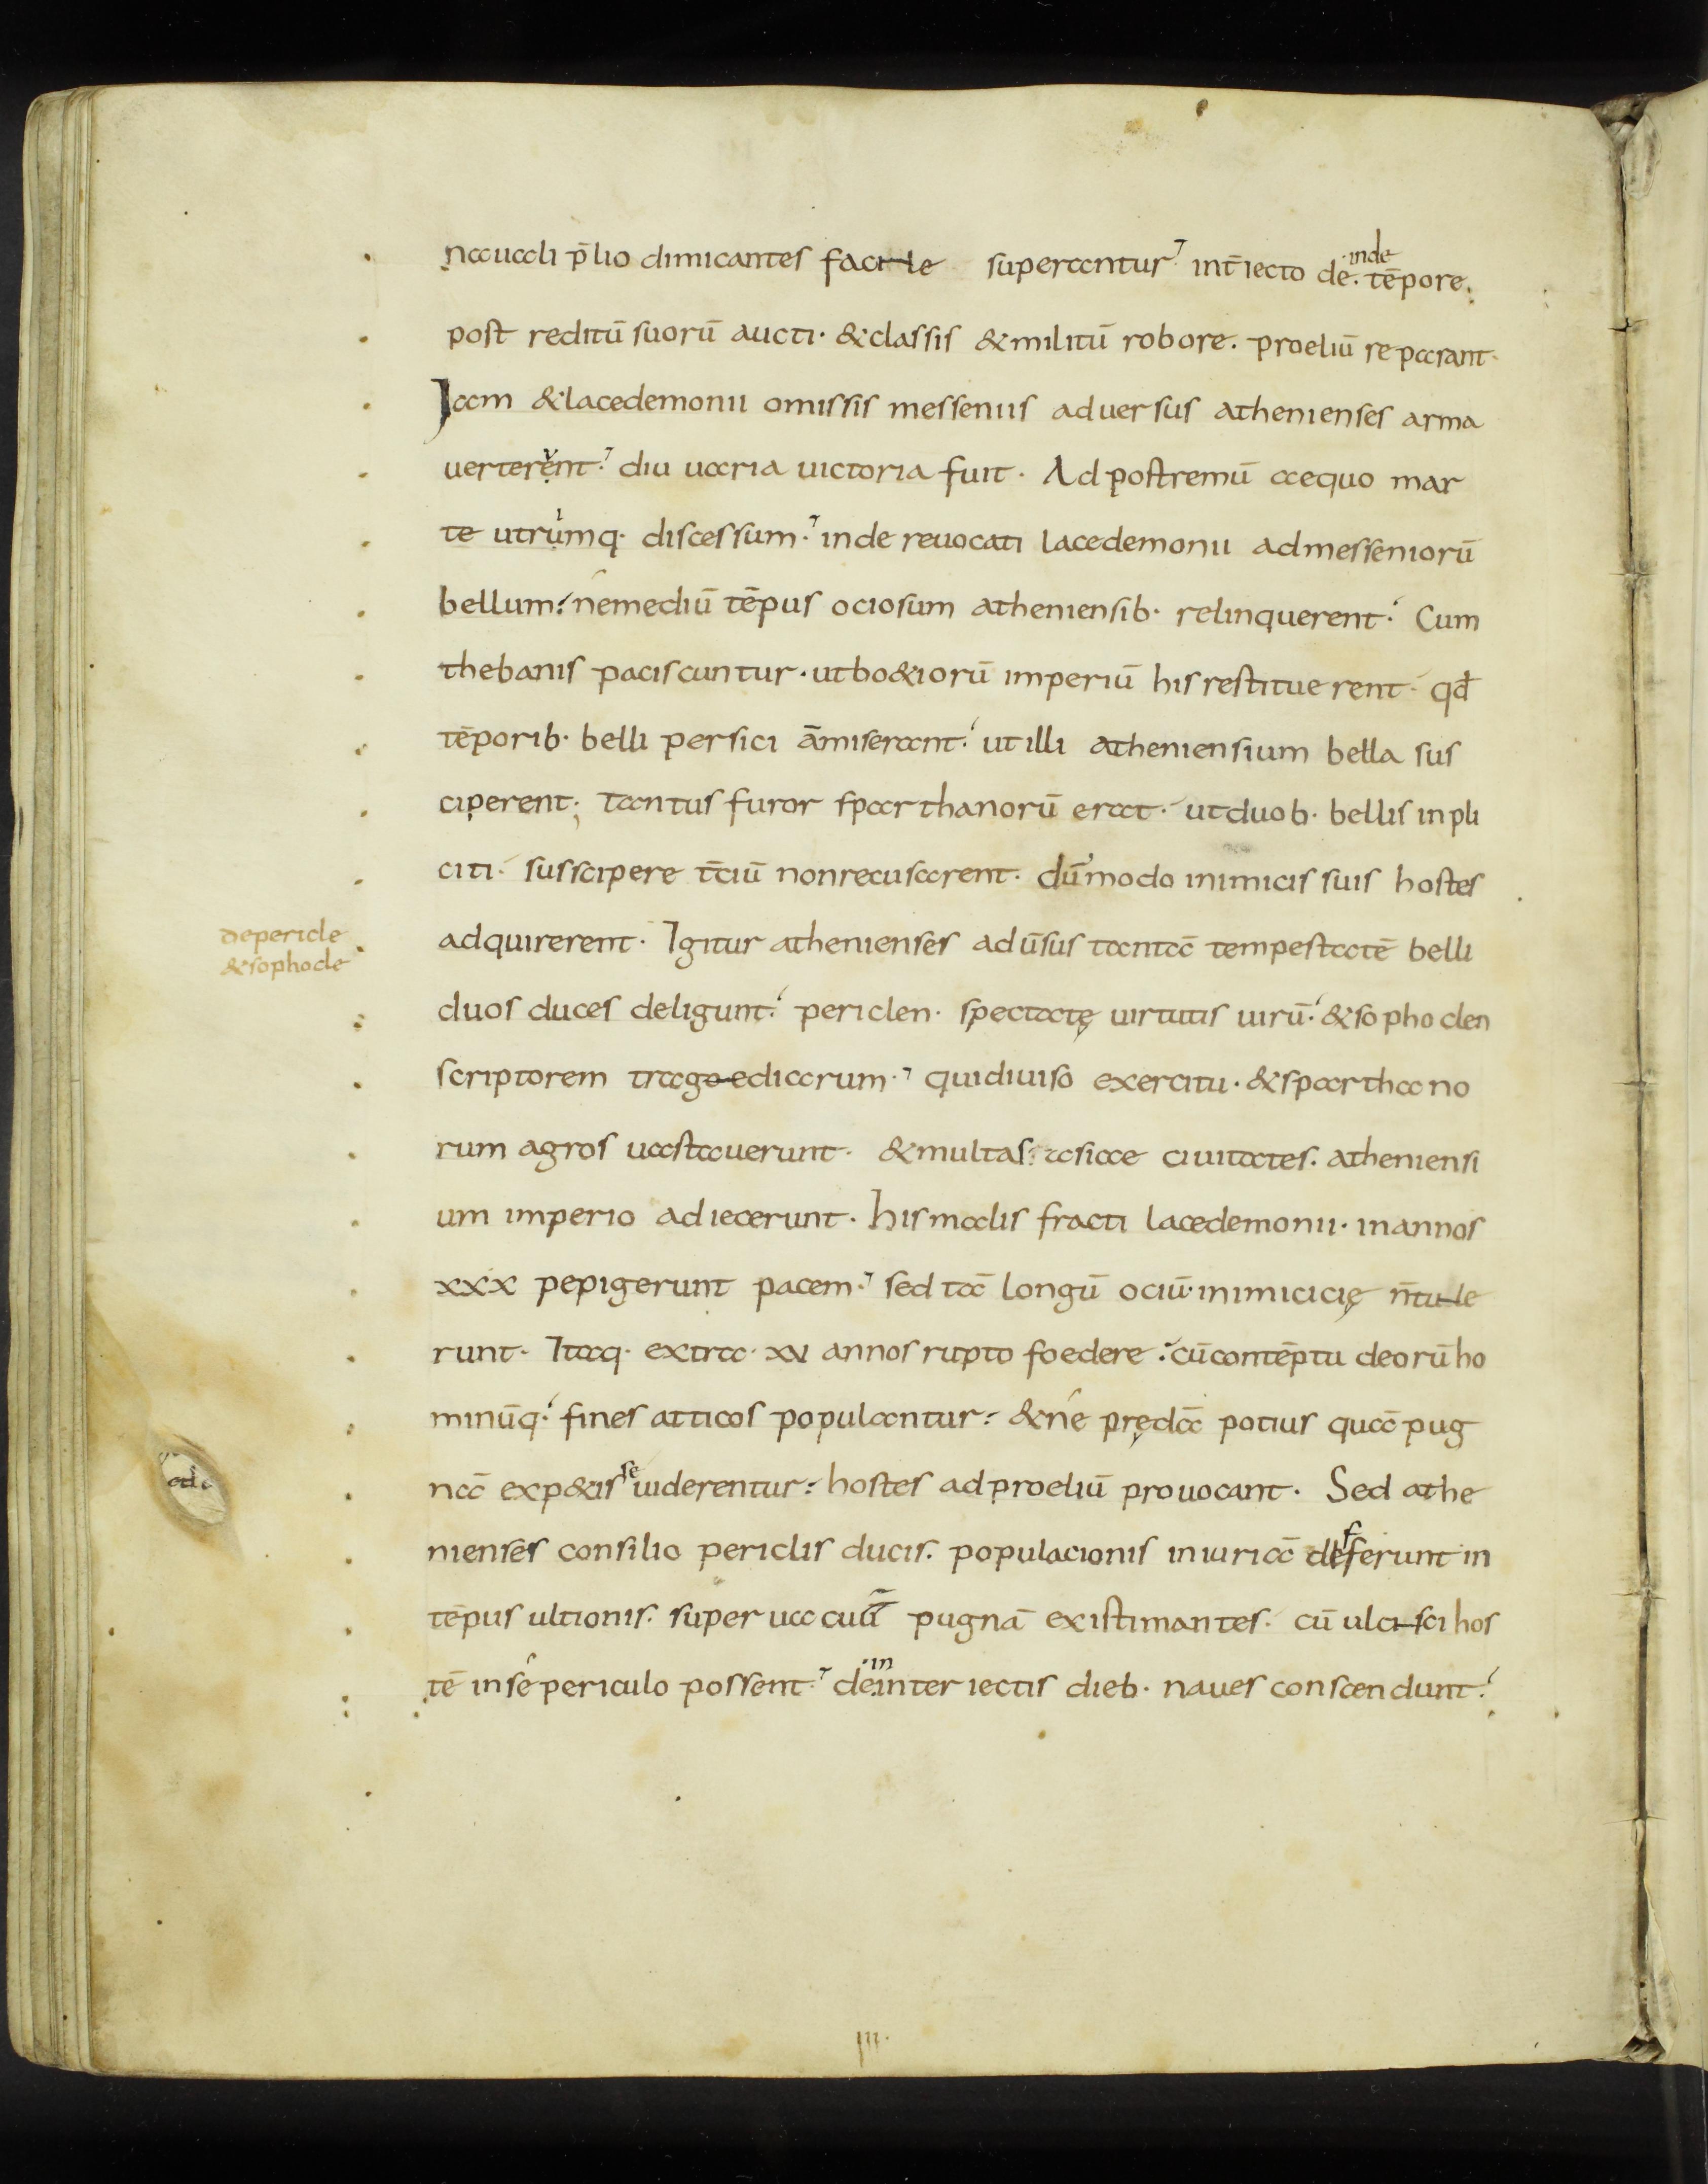 nauali p̄lio dimicantes facile superantur· int̄iecto de·inde tēpore.
post reditū suorū aucti· & classis & militū robore. proeliū reparant·
Iam & lacedemonii omissis messeniis aduersus athenienses arma
uerterent· diu uaria uictoria fuit· Ad postremū aequo mar
te utrimq· discessum· inde reuocati lacedemonii ad messeniorū
bellum· ne mediū tēpus ociosum atheniensib· relinquerent· Cum
thebanis paciscuntur· ut bo&iorū imperiū his restituerent· qđ
tēporib· belli persici āmiserant· ut illi atheniensium bella sus
ciperent; tantus furor sparthanorū erat· ut duob· bellis inpli
citi· susscipere t̄ciū non recusarent· dū modo inimicis suis hostes
depericle
& sophocle
adquirerent· Igitur athenienses adūsus tantā tempestatē belli
duos duces deligunt· periclen· spectatę uirtutis uirū· & sophoclen
scriptorem tragoediarum· qui diuiso exercitu· & sparthano
rum agros uastauerunt· & multas asiae ciuitates· atheniensi
um imperio adiecerunt· his malis fracti lacedemonii· in annos
xxx pepigerunt pacem· sed tā longū ociū· inimicicię n̄ tule
runt· Itaq· extra· xv annos rupto foedere· cū contēptu deorū ho
minūq· fines atticos populantur· & ne prędā potius quā pug
nā exp&isse uiderentur· hostes ad proeliū prouocant· Sed athe
nienses consilio periclis ducis· populacionis iniuriā defferunt in
tēpus ultionis· superuacuā pugnā existimantes· cū ulcisci hos
tē in se periculo possent· dein inter iectis dieb· naues conscendunt·
III·